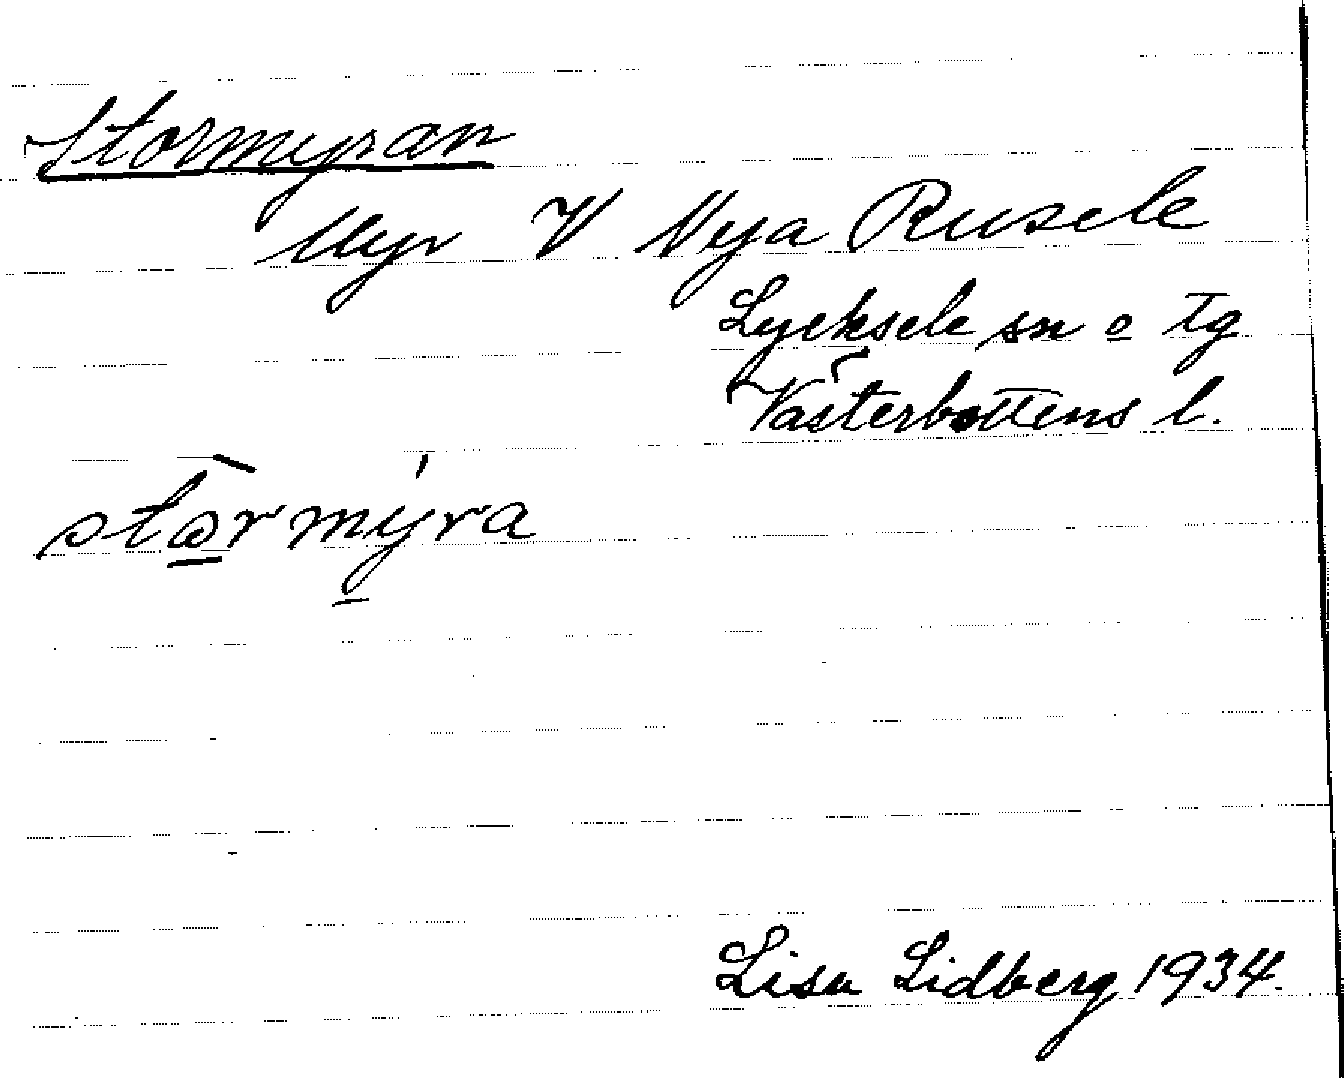 Stormyran
Myr V Nya Rusele
Lycksele sn o tg
Västerbottens l.
stòrmýra
Lisa Lidberg 1934.